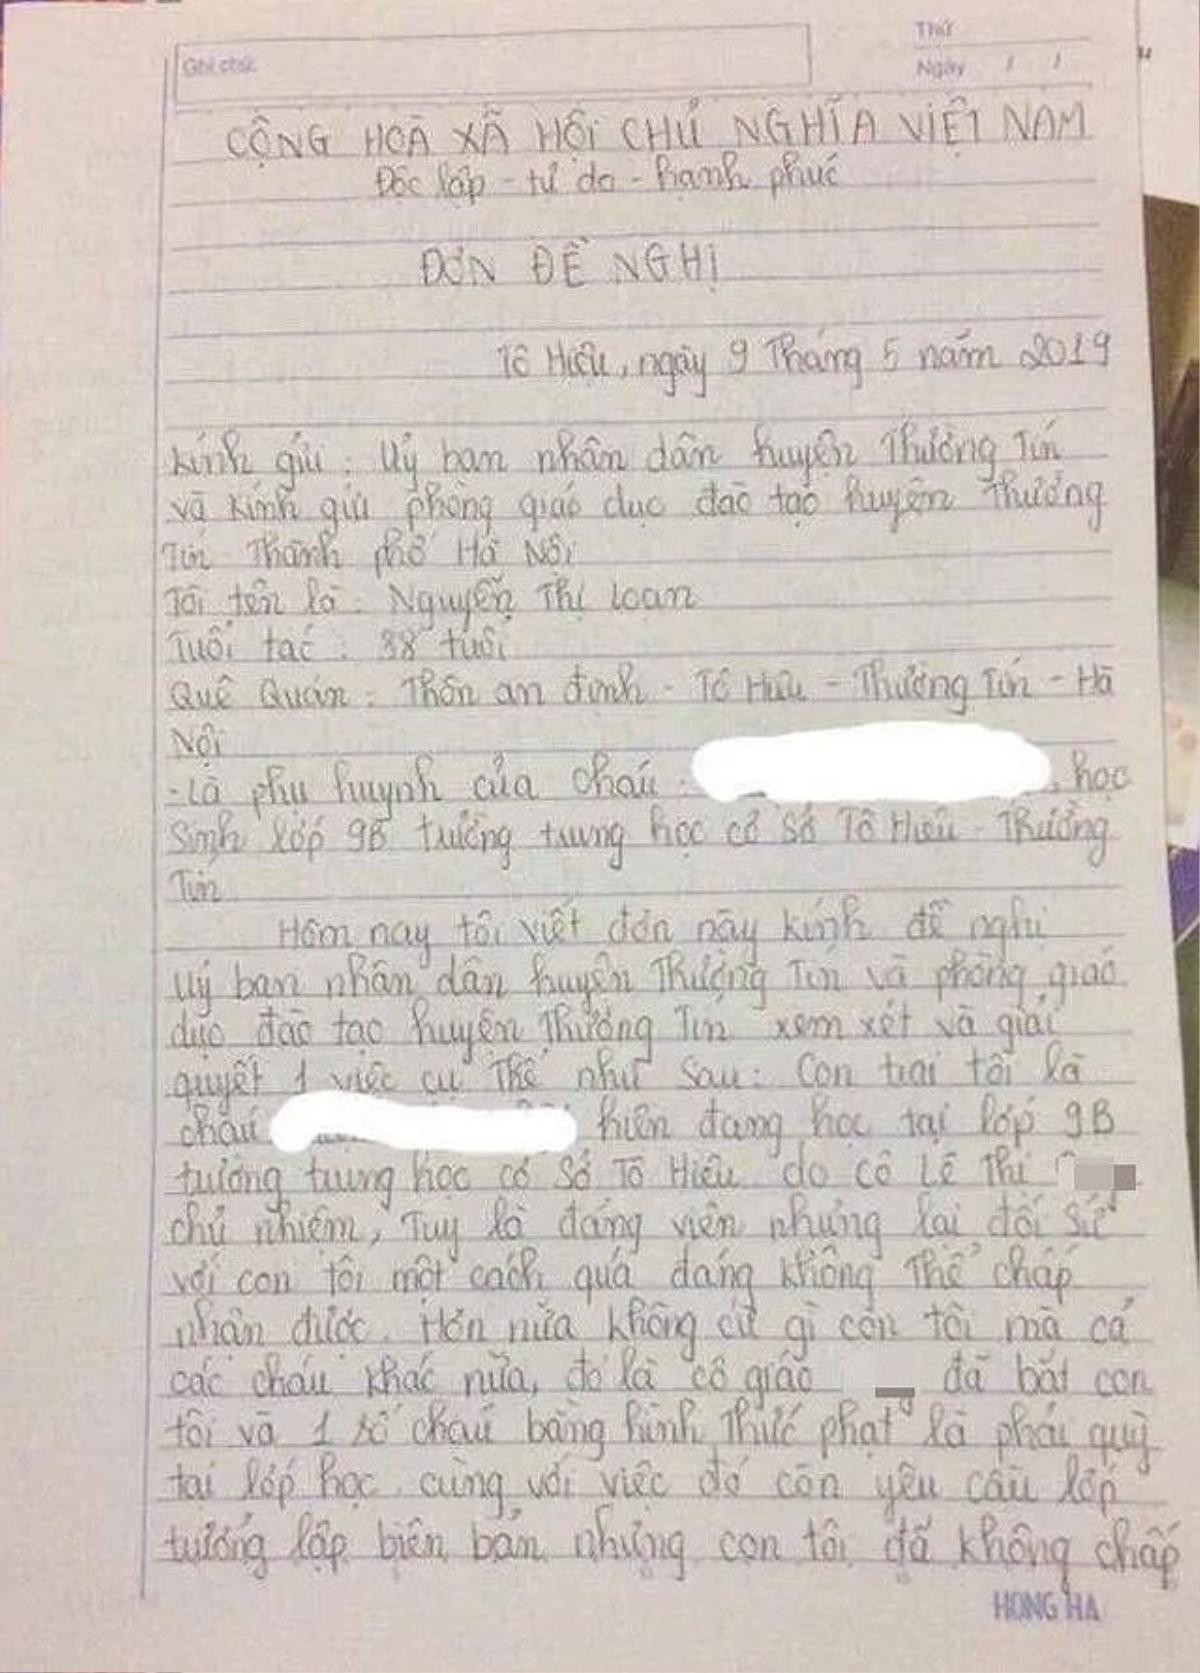 Ghi chú:
Thứ
Ngày / /
CỘNG HOÀ XÃ HỘI CHỦ NGHĨA VIỆT NAM
Độc lập - tự do - hạnh phúc
ĐƠN ĐỀ NGHỊ
Tô Hiệu, ngày 9 Tháng 5 năm 2019
Kính gửi : Uỷ ban nhân dân huyện Thường Tín
và Kính gửi phòng giáo dục đào tạo huyện Thường
Tín Thành phố Hà Nội
Tôi tên là : Nguyễn Thị Loan
Tuổi tác : 38 tuổi
Quê Quán : Thôn an định - Tô Hiệu - Thường Tín - Hà
Nội
- Là phụ huynh của cháu : , học
Sinh lớp 9B trường trung học cơ Sở Tô Hiệu - Thường
Tín
Hôm nay tôi viết đơn này kính đề nghị
Uỷ ban nhân dân huyện Thường Tín và phòng giáo
dục đào tạo huyện Thường Tín xem xét và giải
quyết 1 việc cụ Thể như Sau : Con trai tôi là
cháu hiện đang học tại lớp 9B
trường trung học cơ Sở Tô Hiệu do cô Lê Thị
chủ nhiệm, Tuy là đảng viên nhưng lại đối Sử
với con tôi một cách quá đáng không Thể chấp
nhận được. Hơn nữa không cứ gì con tôi mà cả
các cháu khác nữa, đó là cô giáo đã bắt con
tôi và 1 số cháu bằng hình Thức phạt là phải quỳ
tại lớp học. cùng với việc đó còn yêu cầu lớp
trưởng lập biên bản nhưng con tôi đã không chấp
HONG HA